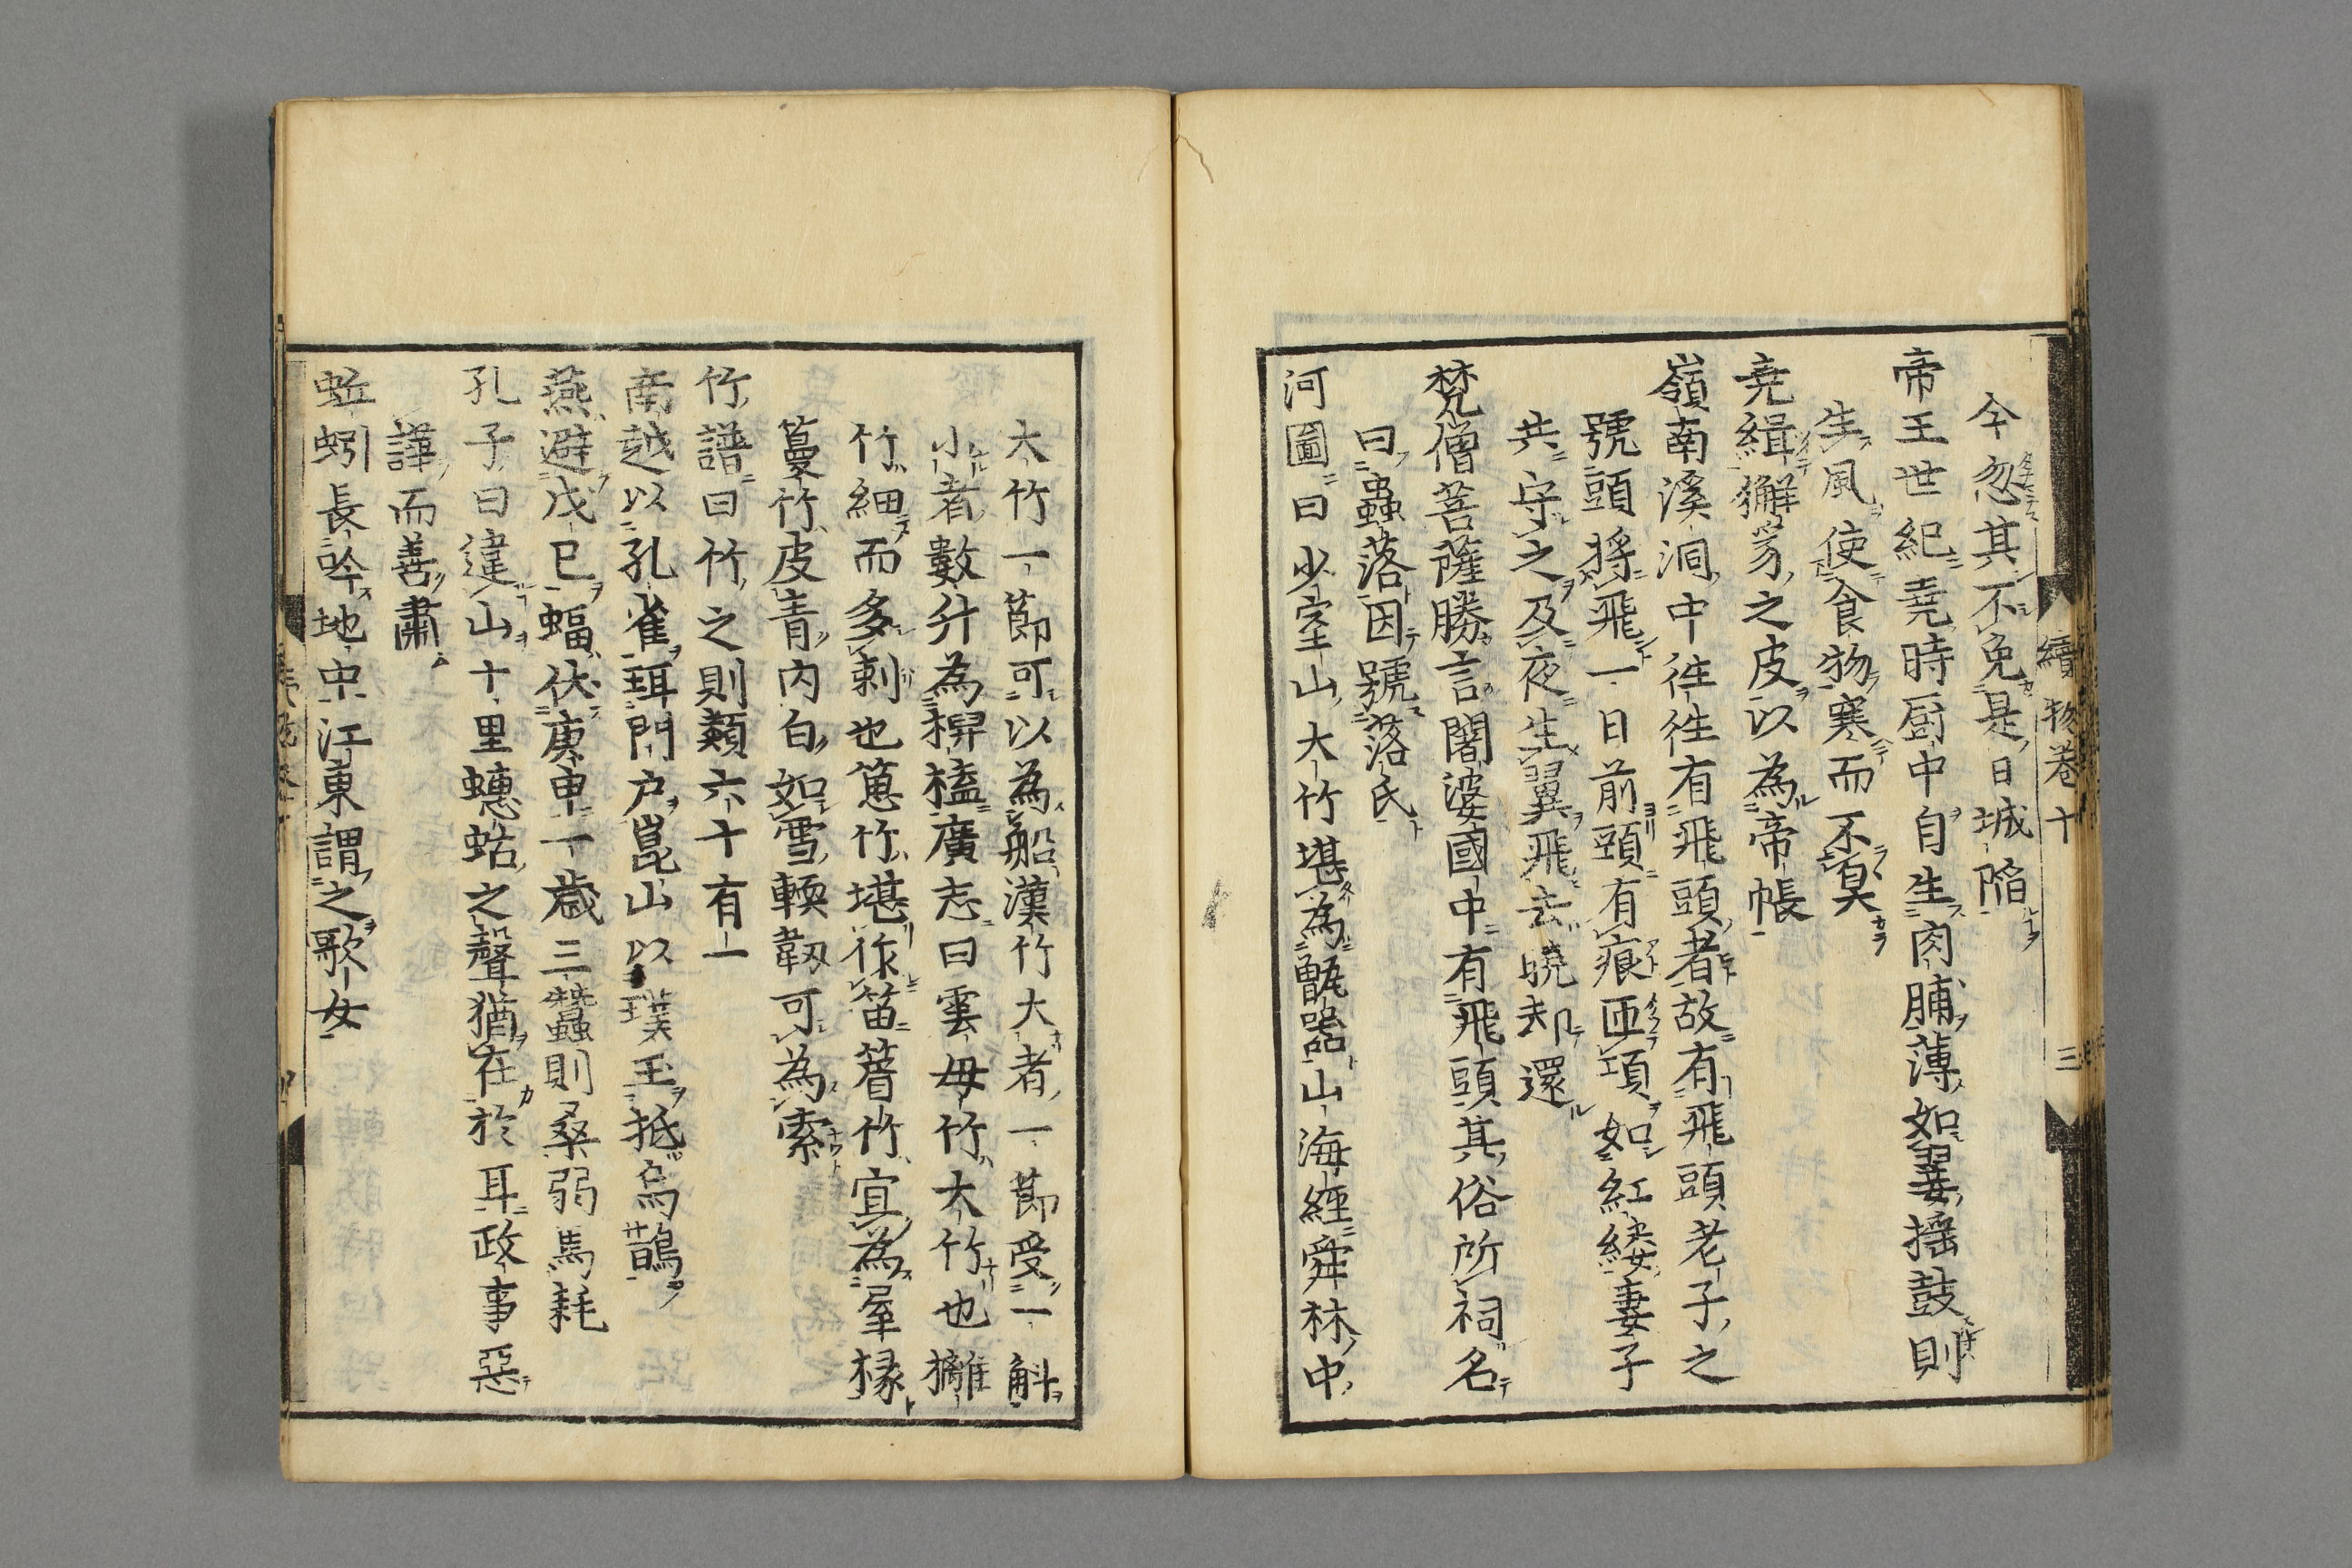 續物卷十
三
今忽其不免是日城陷
帝王世紀堯時厨中自生肉脯薄如翣揺鼓則
生風使食物寒而不臭
堯緝獬豸之皮以為帝帳
嶺南溪洞中徃徃有飛頭者故有飛頭老子之
號頭将飛一日前頸有痕匝項如紅縷妻子
共守之及夜生翼飛去曉却還
梵僧菩薩勝言闍婆國中有飛頭其俗所祠名
曰蟲落因號落民
河圖曰少室山大竹堪為甑器山海經舜林中
大竹一節可以為船漢竹大者一節受一斛
小者數升為椑榼廣志曰雲母竹大竹也䉶
竹細而多刺也䈡竹堪作笛䈜竹宜為屋椽
䈵竹皮青内白如雪輭韌可為索
竹譜曰竹之則類六十有一
南越以孔雀珥門户崑山以璞玉抵烏鵲
燕避戊已蝠伏庚申一歳三蠶則桑弱馬耗
孔子曰違山十里蟪蛄之聲猶在於耳政事惡
譁而善肅
蚯蚓長吟地中江東謂之歌女